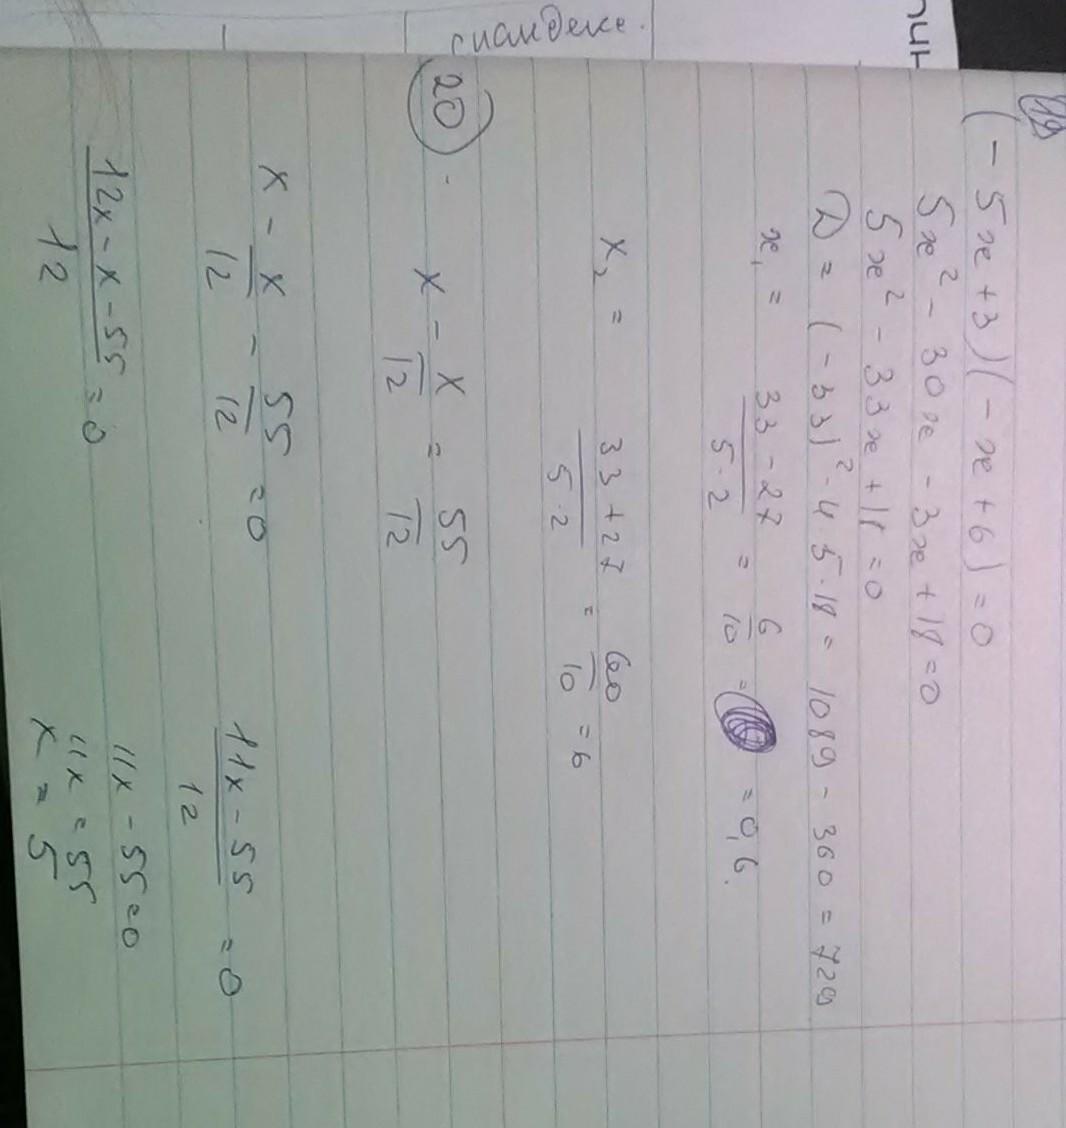 яндексе.
19
(-5x+3)(-x+6)=0
5x² - 30x - 3x + 18 = 0
5x² - 33x + 18 = 0
D = (-33)² - 4·5·18 = 1089 - 360 = 729
x₁ = (33 - 27)/(5·2) = 6/10 = = 0,6.
x₂ = (33 + 27)/(5·2) = 60/10 = 6
20
x - x/12 = 55/12
x - x/12 - 55/12 = 0
(11x - 55)/12 = 0
(12x - x - 55)/12 = 0
11x - 55 = 0
11x = 55
x = 5